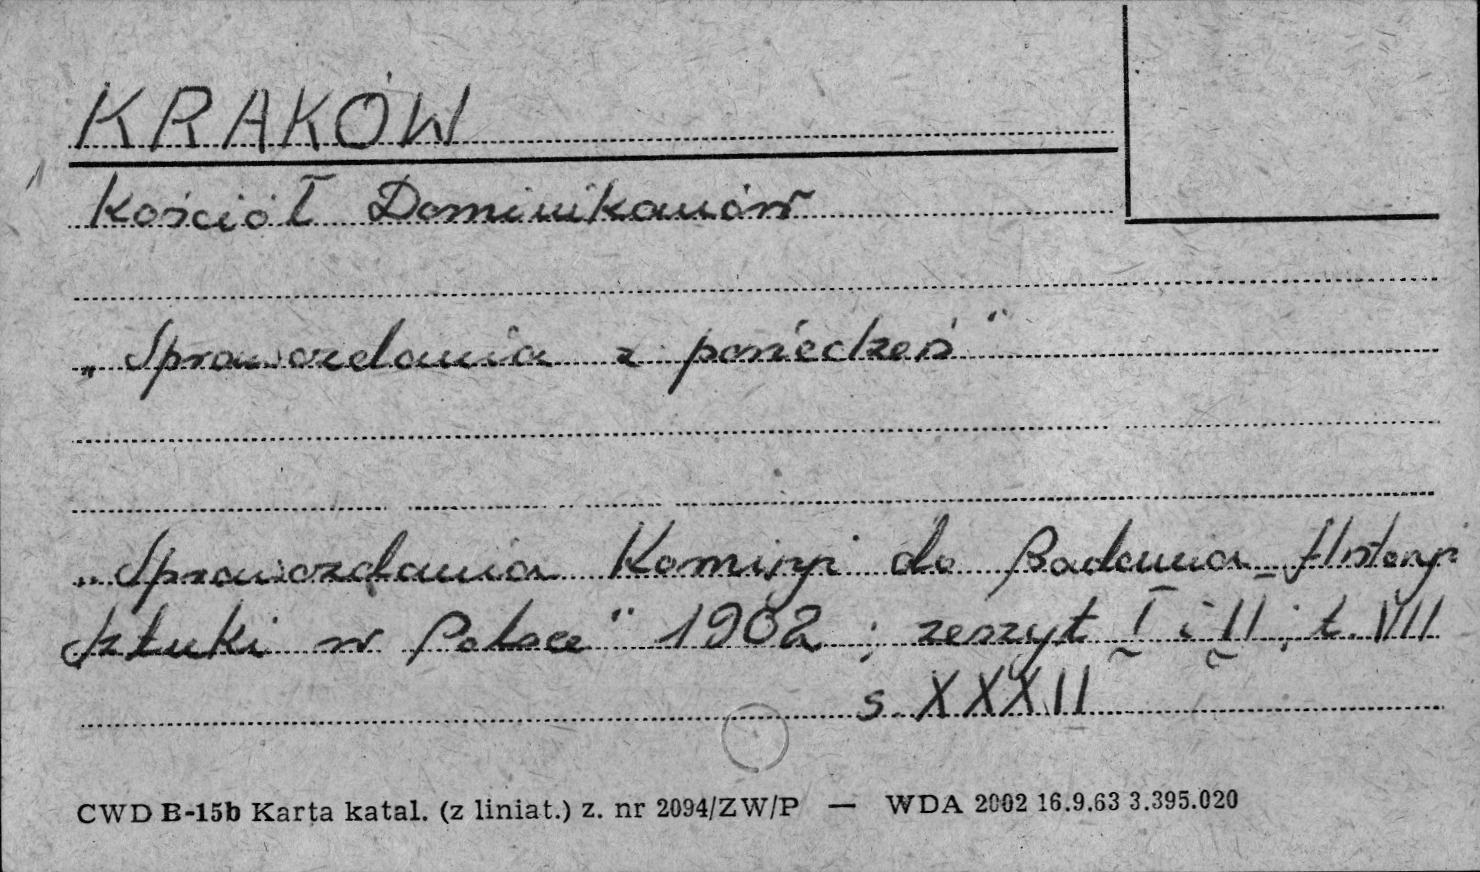 KRAKÓW
Kościół Dominikanów
„Sprawozdania z posiedzeń"
„Sprawozdania Komisyi do Badania Historyi
sztuki w Polsce" 1902 ; zeszyt I i II ; t. VII
s. XXXII
CWD B-15b Karta katal. (z liniat.) z. nr 2094/ZW/P — WDA 2002 16.9.63 3.395.020